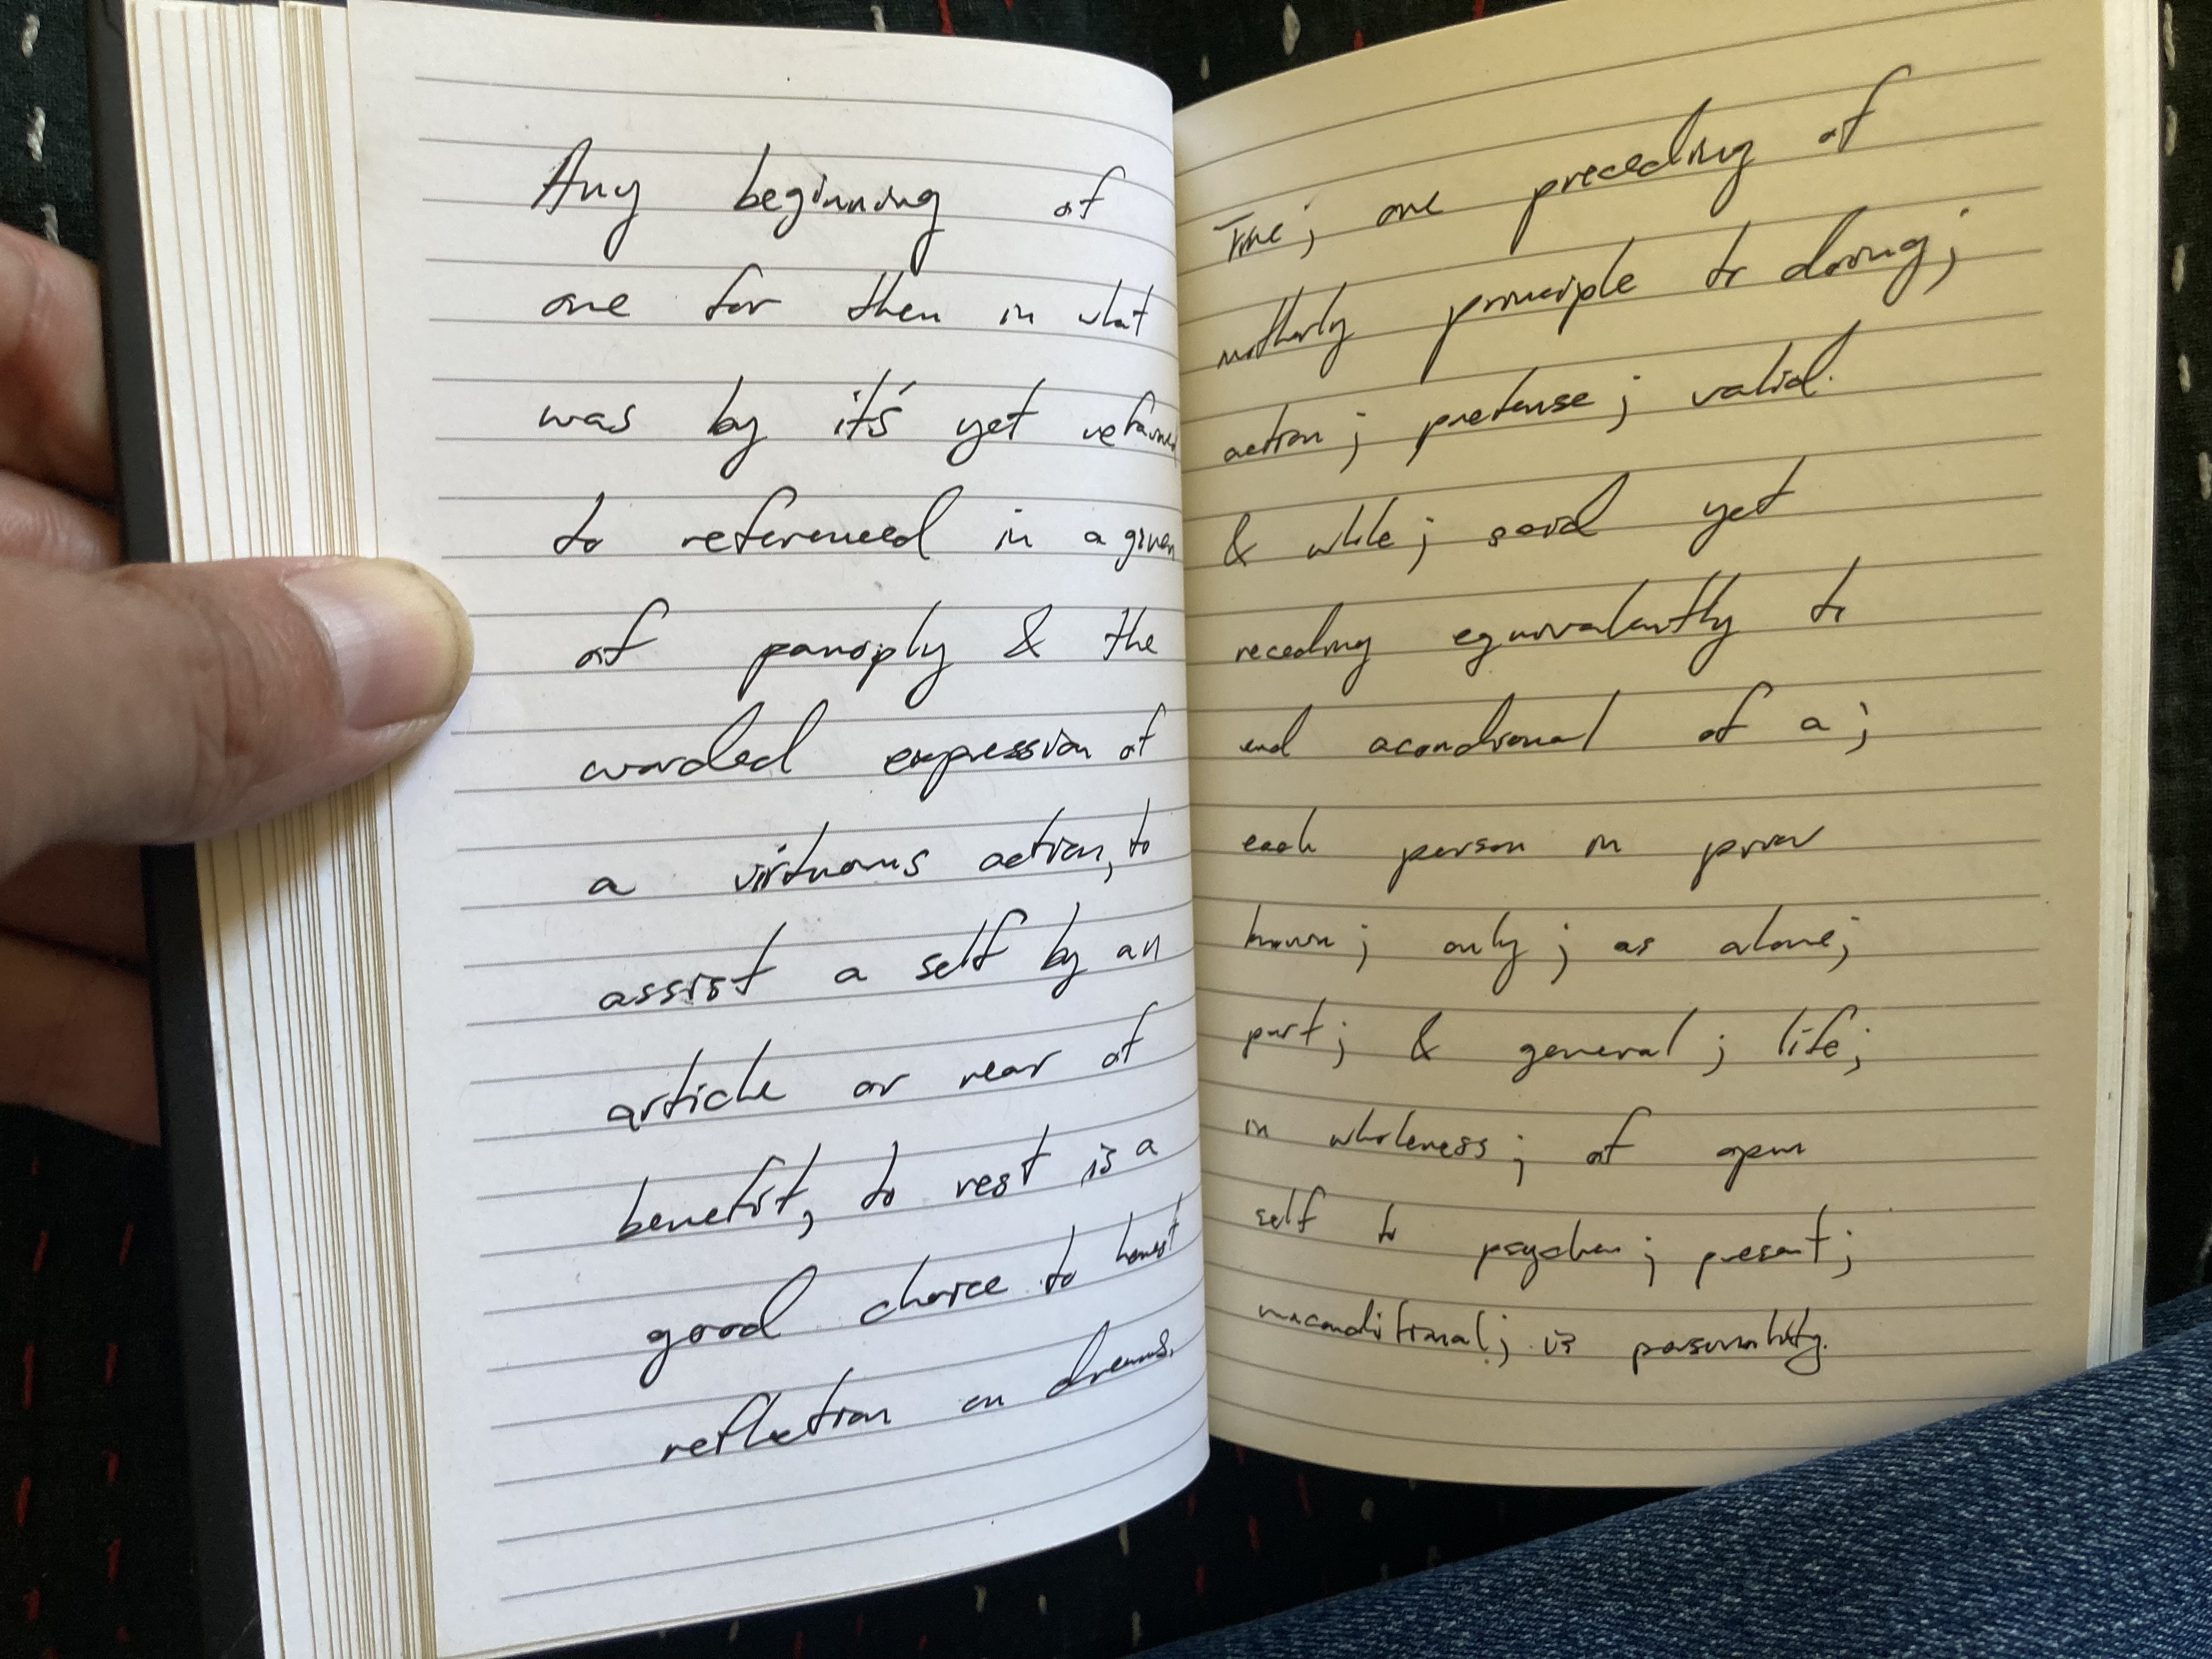 Any beginning of
one for then in what
was by it's yet
to referenced in a given
of panoply & the
warded expression of
a virtuous action, to
assist a self by an
article or near of
benefit, to rest is a
good choice to honest
reflection on dreams.
Time; one preceding of
motherly principle to doing;
action; pretense; valid.
& while; said yet
receding equivalently to
end acondional of a;
each person in prior
known; only; as alone;
part; & general; life;
in wholeness; of open
self to present;
unconditional; is personality.